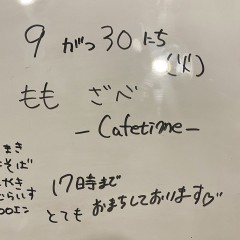 9 がつ 30 にち
(火)
もも ざべ
- Cafetime -
まき
そば
やき
むらいす
00エン
17時まで
とても おまちしております♡